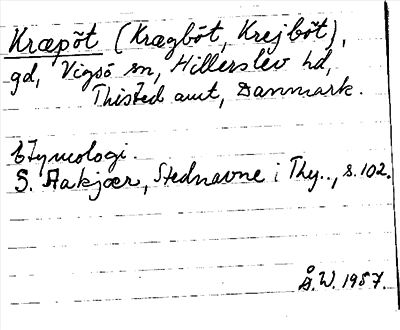 Kræpöt (Krægböt, Krejböt),
gd, Vigsö sn, Hillerslev hd,
Thisted amt, Danmark.
Etymologi.
S. Aakjær, Stednavne i Thy.., s.102.
Å.W. 1987.